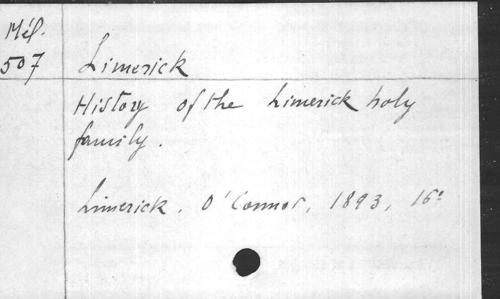 Mél.
507
Limerick
History of the Limerick holy
family.
Limerick, O'Connor, 1893, 16º